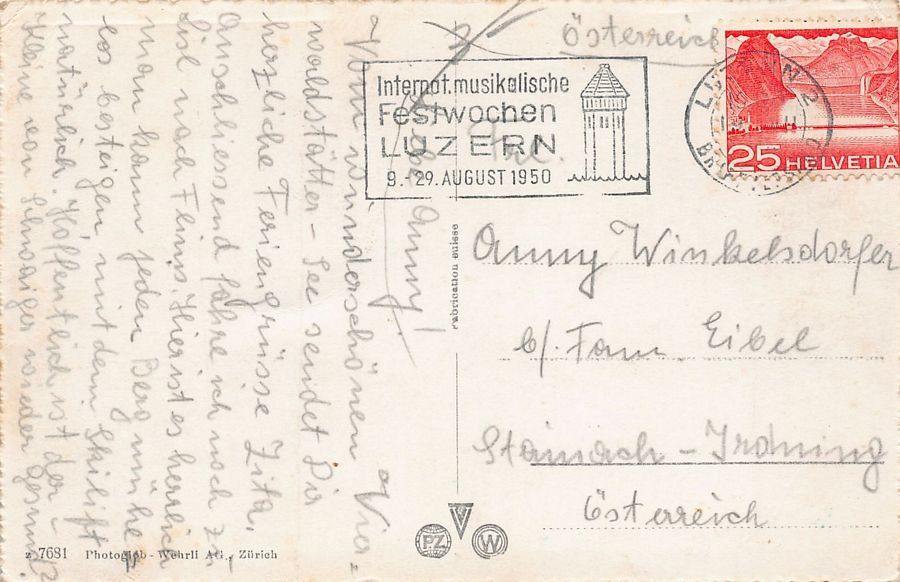 Österreich
Internat. musikalische
Festwochen
LUZERN
9.-29. AUGUST 1950
LUZERN 2
25 HELVETIA
Frl.
Anny Winkelsdorfer
b/ Fam. Eibel
Stainach-Irdning
Österreich
Anny!
Vom wunderschönen Vier-
waldstätter-See sendet Dir
herzliche Feriengrüsse Zita.
Anschliessend fahre ich noch zu
nach Flims. Hier ist es herrlich
man kann jeden Berg mühe-
los besteigen mit dem Skilift
natürlich. Hoffentlich ist der
kleine wieder gesund?
Fabrication suisse
P.Z.
W
z 7681 Photoglob-Wehrli AG., Zürich